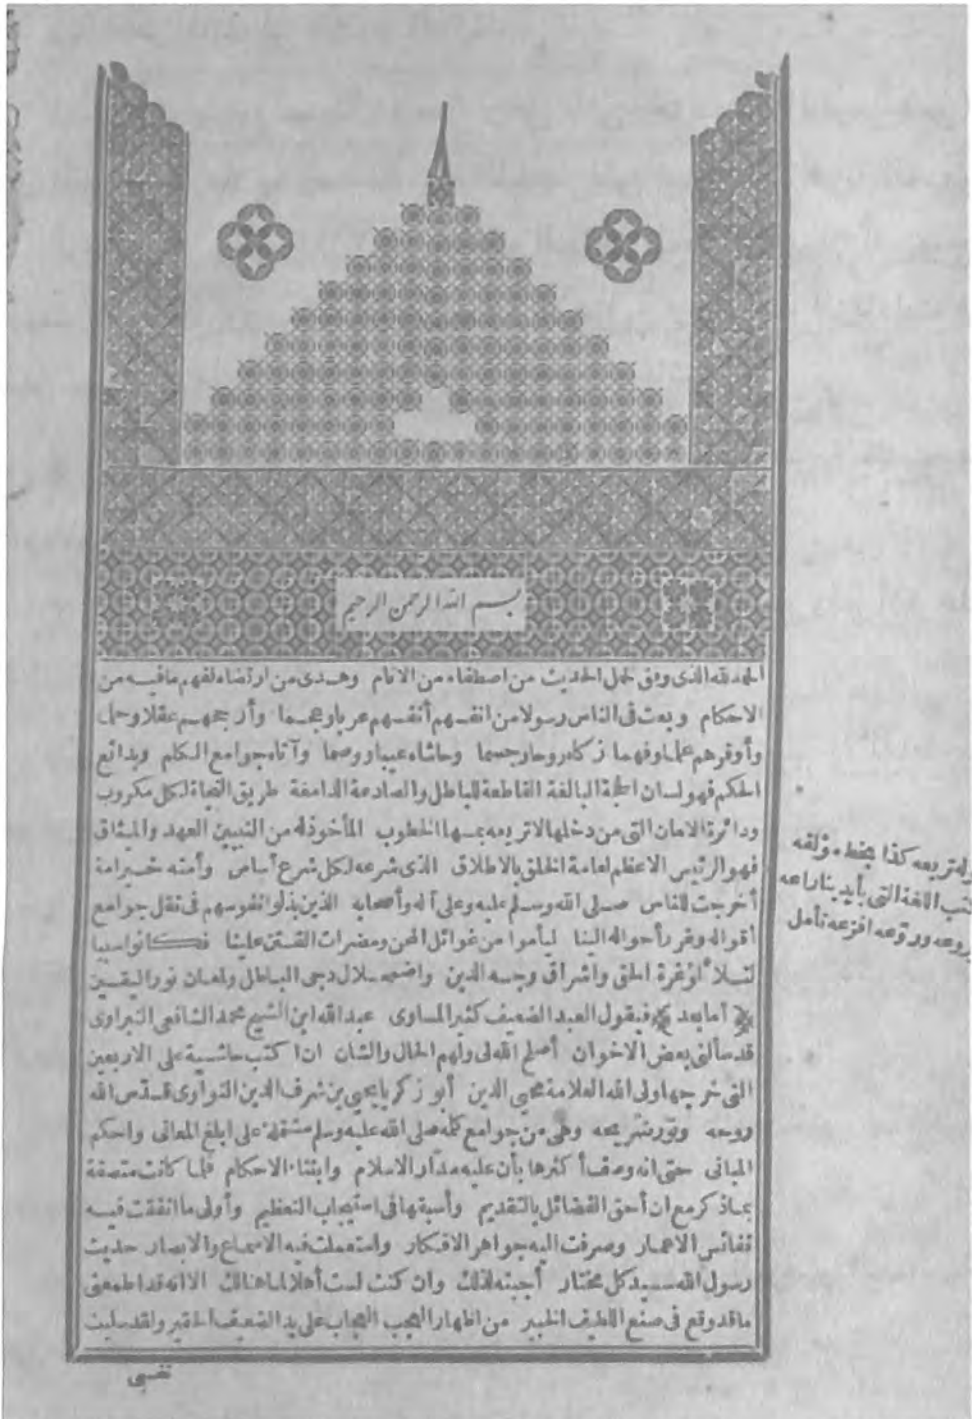 بسم الله الرحمن الرحيم
الحمد لله الذى وفق لحمل الحديث من اصطفاه من الانام وهدى من ارتضاه لفهم ما فيه من
الاحكام وبعث فى الناس رسولا من انفسهم أنفسهم عربا وعجما وأرجحهم عقلا وحلما
وأوفرهم علما وفهما زكاه روحا وجسما وحاشاه عيبا ووصما وآتاه جوامع الكلم وبدائع
الحكم فهو لسان الحجة البالغة القاطعة للباطل والصادعة الدامغة طريق النجاة لكل مكروب
ودائرة الامان التى من دخلها لا تريعه بمسها الخطوب المأخوذ له من النبيين العهد والميثاق
فهو الرئيس الاعظم لعامة الخلق بالاطلاق الذى شرعه لكل شرع أساس وأمته خير امة
أخرجت للناس صلى الله وسلم عليه وعلى آله وأصحابه الذين بذلوا نفوسهم فى نقل جوامع
أقواله وغرر أحواله الينا ليأمنوا من غوائل المحن ومضرات الفتن علينا فكانوا سببا
لتلألؤ غرة الحق واشراق وجه الدين واضمحلال دجى الباطل ولمعان نور اليقين
﴿ أما بعد ﴾ فيقول العبد الضعيف كثير المساوى عبد الله ابن الشيخ محمد الشافعى النبراوى
قد سألنى بعض الاخوان أصلح الله لى ولهم الحال والشان ان اكتب حاشية على الاربعين
التى خرجها ولى الله العلامة محيى الدين أبو زكريا يحيى بن شرف الدين النواوى قدّس الله
روحه ونوّر ضريحه وهى من جوامع كلمه صلى الله عليه وسلم مشتملة على ابلغ المعانى واحكم
المبانى حتى انه وصف أكثرها بأن عليه مدار الاسلام وابتناء الاحكام فلما كانت متصفة
بما ذكر مع ان أحق الفضائل بالتقديم وأسبقها فى استيجاب التعظيم وأولى ما انفقت فيه
نفائس الاعمار وصرفت اليه جواهر الافكار واستعملت فيه الاسماع والابصار حديث
رسول الله سيد كل مختار أجبته لذلك وان كنت لست أهلا لما هنالك الا انه قد اطمعنى
ما قد وقع فى صنع اللطيف الخبير من اظهار العجب العجاب على يد الضعيف الحقير ولقد سليت
نفسى
تريعه كذا بخطه مؤلفه
كتب اللغة التى بأيدينا راعه
يروعه وروّعه افزعه تأمل